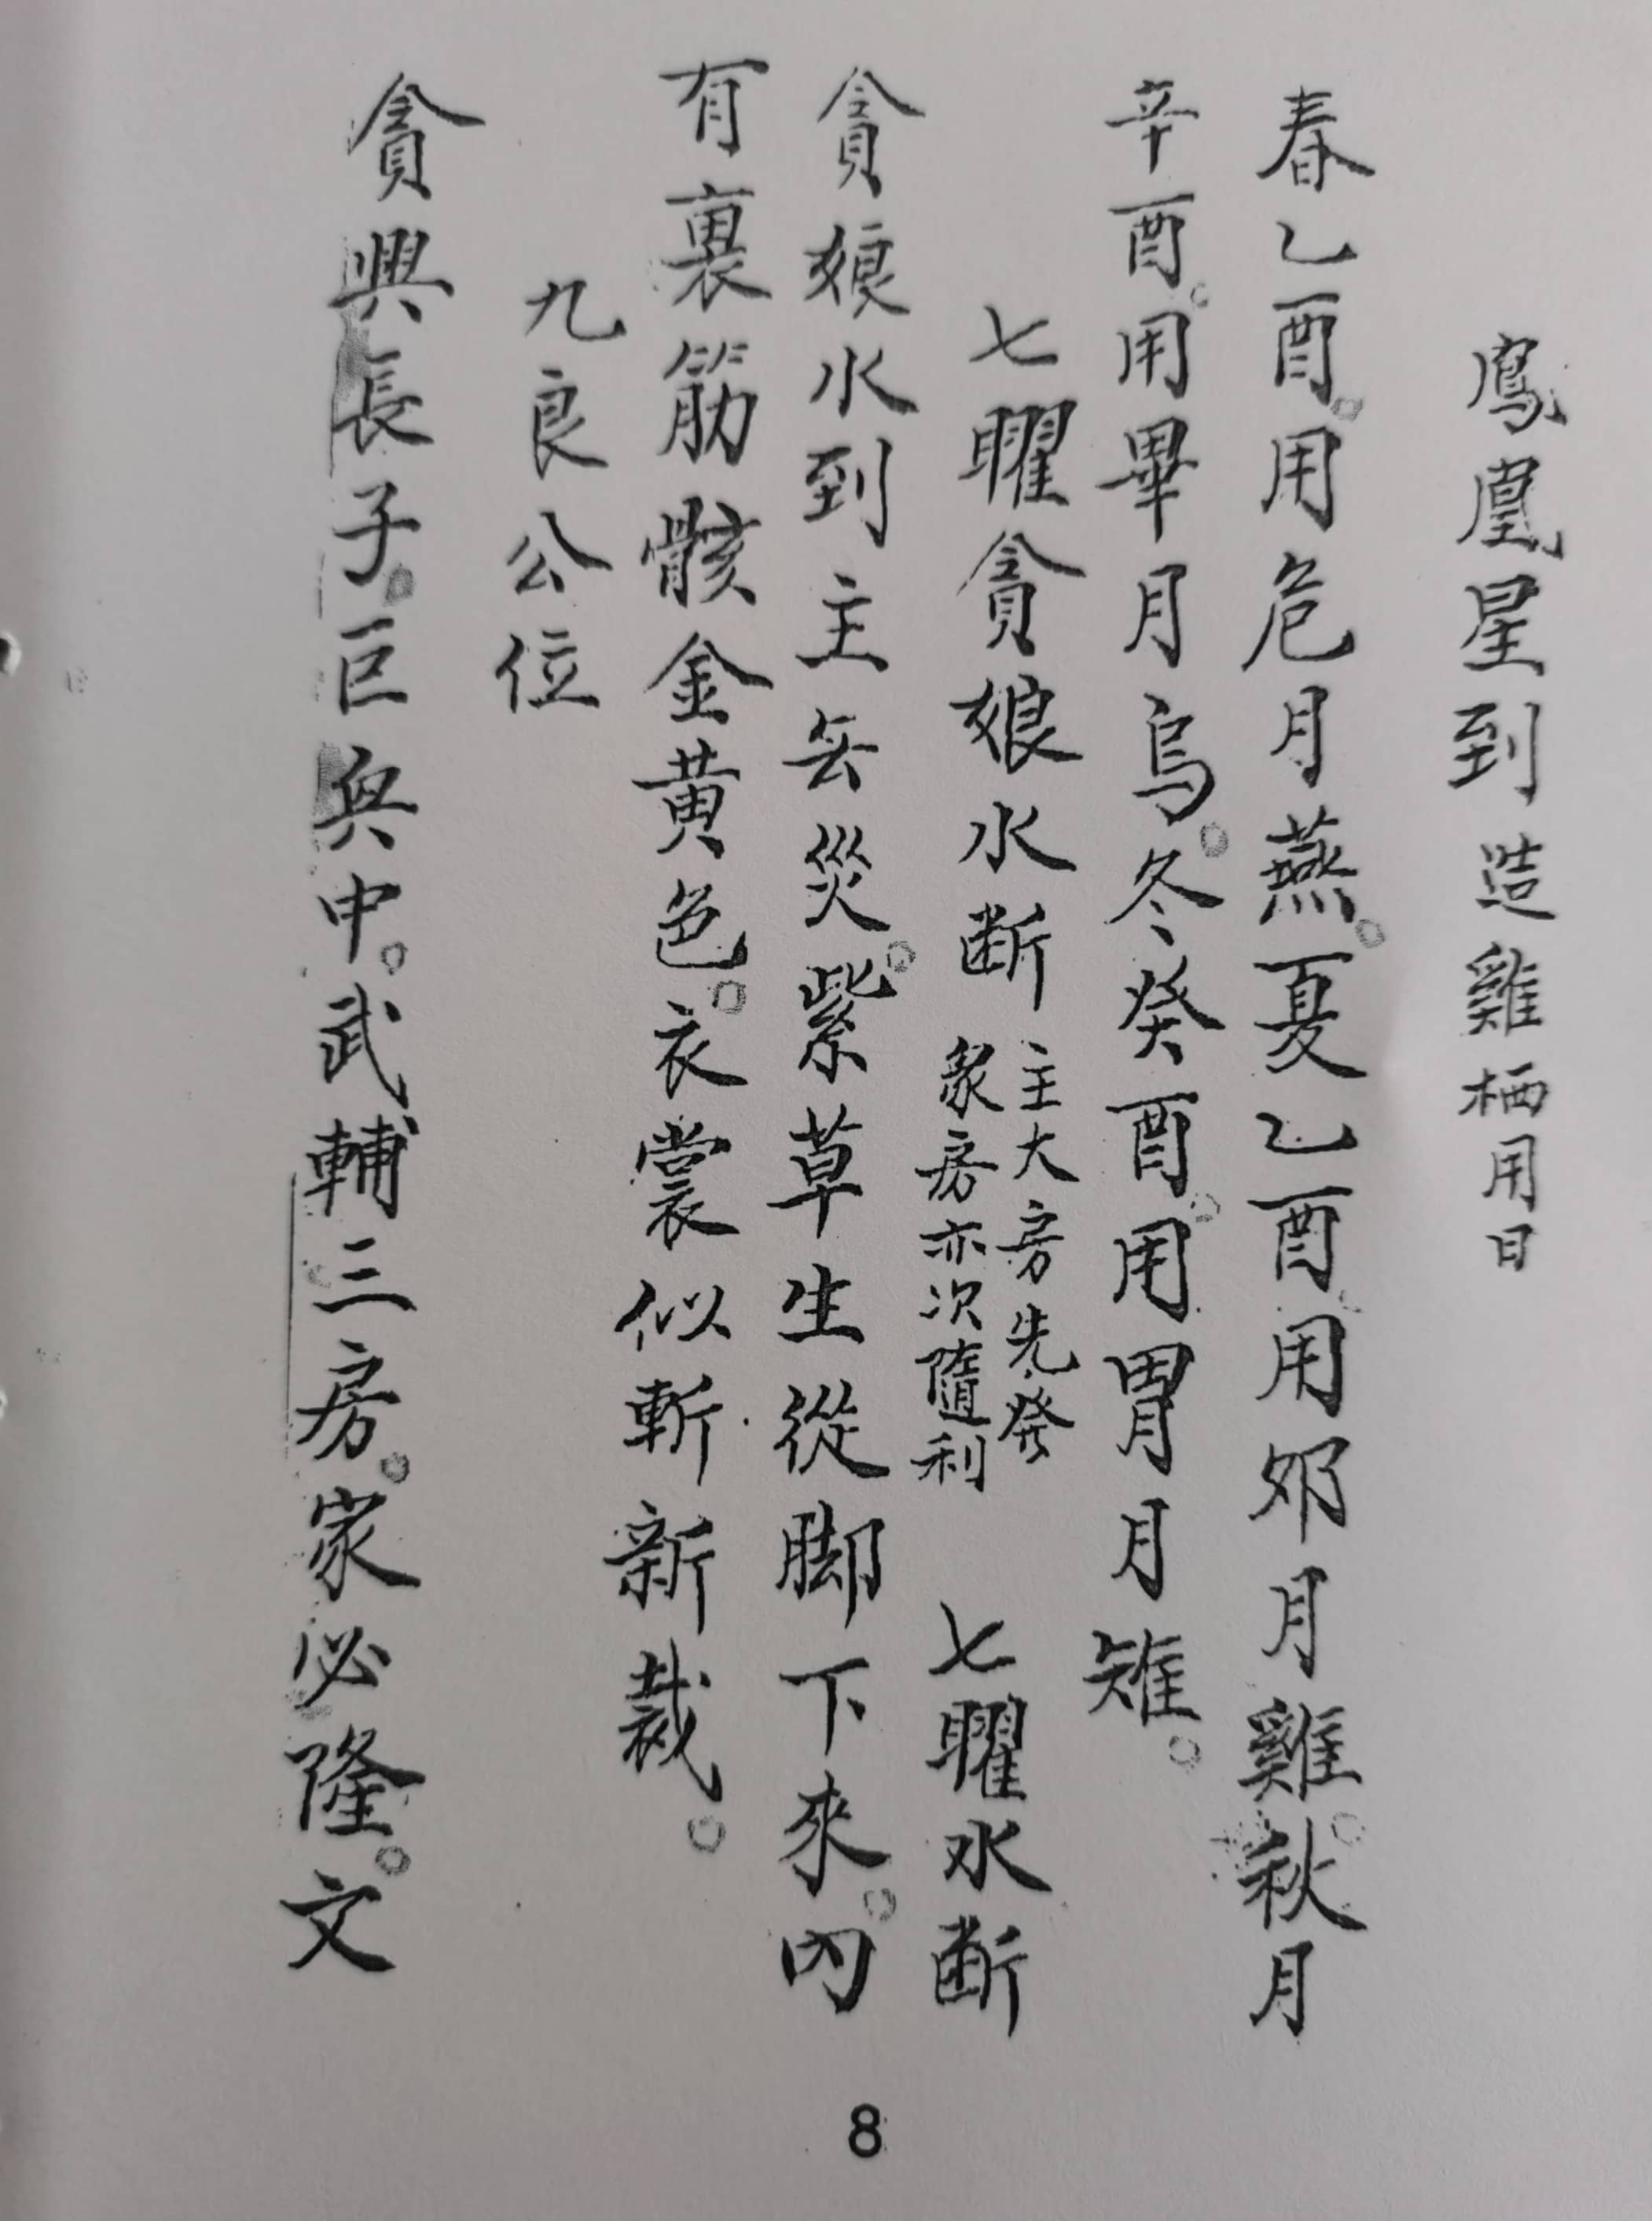 鳳凰星到 造雞栖用日
春乙酉。用危月燕。夏乙酉用邜月雞。秋月
辛酉。用畢月烏。冬癸酉。用胃月雉。
七曜貪娘水断 主大房先發 衆房亦次隨利 七曜水断
貪娘水到主無災。紫草生從脚下來。内
有裏筋骸金黄色。衣裳似斬新裁。
九良公位
貪興長子。巨兵中。武輔三房。家必隆。文
8